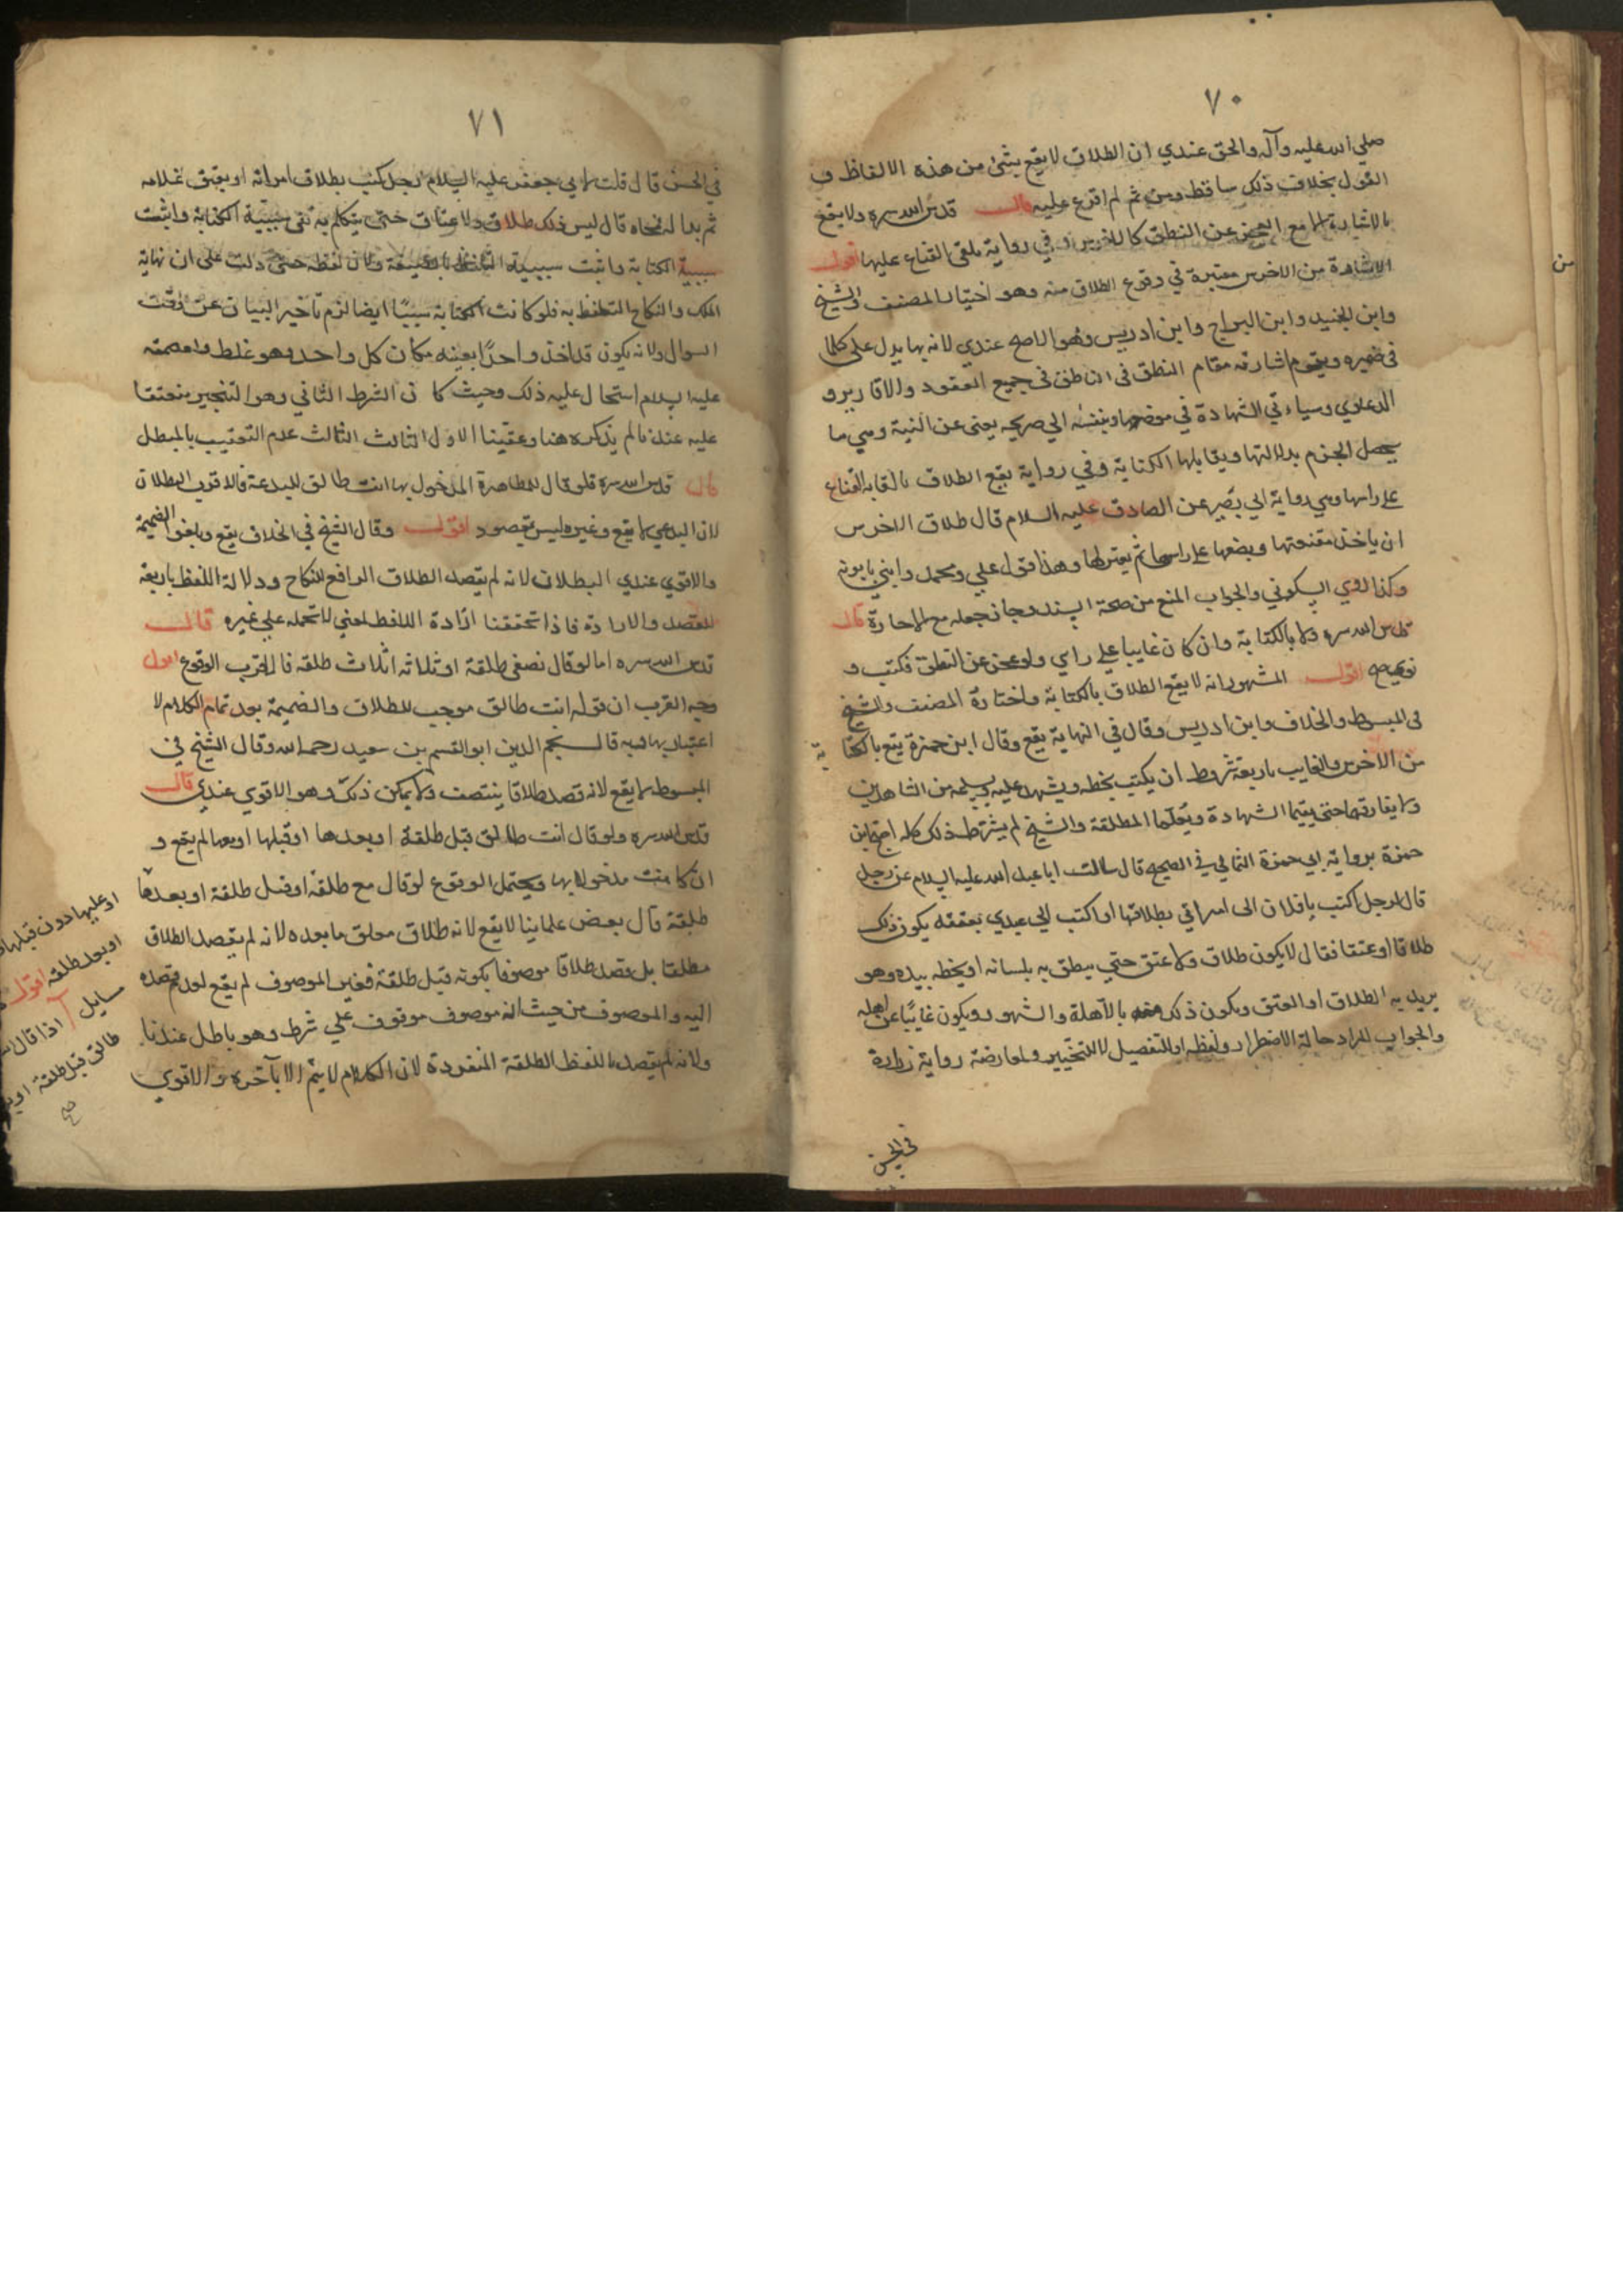 ٧٠
صلي الله عليه وآله والحق عندي ان الطلاق لا يقع بشئ من هذه الالفاظ و
القول بخلاف ذلك ساقط ومن ثم لم اقرع عليه قال قدس الله سره ولا يقع
بالاشارة الا مع العجز عن النطق كالاخرس وفي رواية يلقى القناع عليها اقول
الاشارة من الاخرس معتبرة في وقوع الطلاق منه وهو اختيار المصنف والشيخ
وابن الجنيد وابن البراج وابن ادريس وهو الاصح عندي لانه بها يدل على كلما
في ضميره ويقوم اشارته مقام النطق في الناطق في جميع العقود والاقارير و
الدعاوي وسياتي الشهادة في موضعها وينقسم الي صريحه يغنى عن النية وهي ما
يحصل الجزم بدلالتها ويقابلها الكناية وفي رواية يقع الطلاق بالقايه القناع
علي راسها وهي رواية ابي بصير عن الصادق عليه السلام قال طلاق الاخرس
ان ياخذ مقنعتها ويضعها علي راسها ثم يعتزلها وهذا قول علي ومحمد وابني بابويه
وكذا روي السكوني والجواب المنع من صحة السند وجاز جعله مع الاحارة قال
قدس الله سره ولا بالكتابة وان كان غايبا علي راي ولو عجز عن النطق فكتب و
نوى صح اقول المشهور انه لا يقع الطلاق بالكتابة واختاره المصنف والشيخ
في المبسوط والخلاف وابن ادريس وقال في النهاية يقع وقال ابن حمزة يقع بالكتابة
من الاخرس والغايب باربعة شروط ان يكتب بخطه ويشهد عليه ويسلمه من الشاهدين
ولا يفارقهما حتى يقيما الشهادة ويعلما المطلقة والشيخ لم يشترط ذلك كله احتج ابن
حمزة برواية ابي حمزة الثمالي في الصحيح قال سالت ابا عبد الله عليه السلام عن رجل
قال لرجل اكتب يا فلان الى امراتي بطلاقها او اكتب الي عبدي بعتقه يكون ذلك
طلاقا او عتقا فقال لا يكون طلاق ولا عتق حتي ينطق به بلسانه او يخطه بيده وهو
يريد به الطلاق او العتق ويكون ذلك منه بالاهلة والشهور ويكون غائبا عن اهله
والجواب المراد حالة الاضطرار ولفظه او للتفصيل لا للتخيير ولمعارضة رواية زرارة
في الحسن
من
٧١
في الحسن قال قلت لابي جعفر عليه السلام رجل كتب بطلاق امراته او بعتق غلامه
ثم بدا له فمحاه قال ليس ذلك طلاق ولا عتاق حتى يتكلم به نفى سببية الكتابة واثبت
سببية الكتابة واثبت سببية التلفظ بالصيغة ولان لفظه حتى دلت على ان نهاية
الملك والنكاح التلفظ به فلو كانت الكتابة سببا ايضا لزم تاخير البيان عن وقت
السوال ولانه يكون قد اخذ واحدا بعينه مكان كل واحد وهو غلط ولعصمته
عليه السلام استحال عليه ذلك وحيث كان الشرط الثاني وهو التنجيز متفقا
عليه عندنا لم يذكره هنا وعقبنا الاول الثالث الثالث عدم التعقيب بالمبطل
قال قدس الله سره فلو قال للطاهرة المدخول بها انت طالق للبدعة فالاقوى البطلان
لان البدعي لا يقع وغيره ليس مقصود اقول وقال الشيخ في الخلاف يقع ويلغو الضميمة
والاقوي عندي البطلان لانه لم يقصد الطلاق الرافع للنكاح ودلالة اللفظ باربعة
للقصد والارادة فاذا تحققنا ارادة اللافظ لمعني لا نحمله علي غيره قال
قدس الله سره اما لو قال نصفي طلقة او ثلاثه اثلاث طلقه فالاقرب الوقوع اقول
وجه القرب ان قوله انت طالق موجب للطلاق والضميمة بعد تمام الكلام لا
اعتبار بها وبه قال نجم الدين ابو القسم بن سعيد رحمه الله وقال الشيخ في
المبسوط لا يقع لانه قصد طلاقا ينتصف ولا يمكن ذلك وهو الاقوي عندي قال
قدس الله سره ولو قال انت طالق قبل طلقة او بعدها او قبلها او معها لم يقع و
ان كانت مدخولا بها ويحتمل الوقوع لو قال مع طلقة او قبل طلقة او بعدها
طلقة قال بعض علماينا لا يقع لانه طلاق معلق ما بعده لانه لم يقصد الطلاق
مطلقا بل قصد طلاقا موصوفا بكونه قبل طلقة فغير الموصوف لم يقع لعدم قصده
اليه والموصوف من حيث انه موصوف موقوف علي شرط وهو باطل عندنا
ولانه لم يقصد باللفظ الطلقة المنفردة لان الكلام لا يتم الا بآخره والاقوي
او عليها دون قبلها
او بعد طلقه اقول
مسايل آ اذا قال
طالق قبل طلقة او
صح